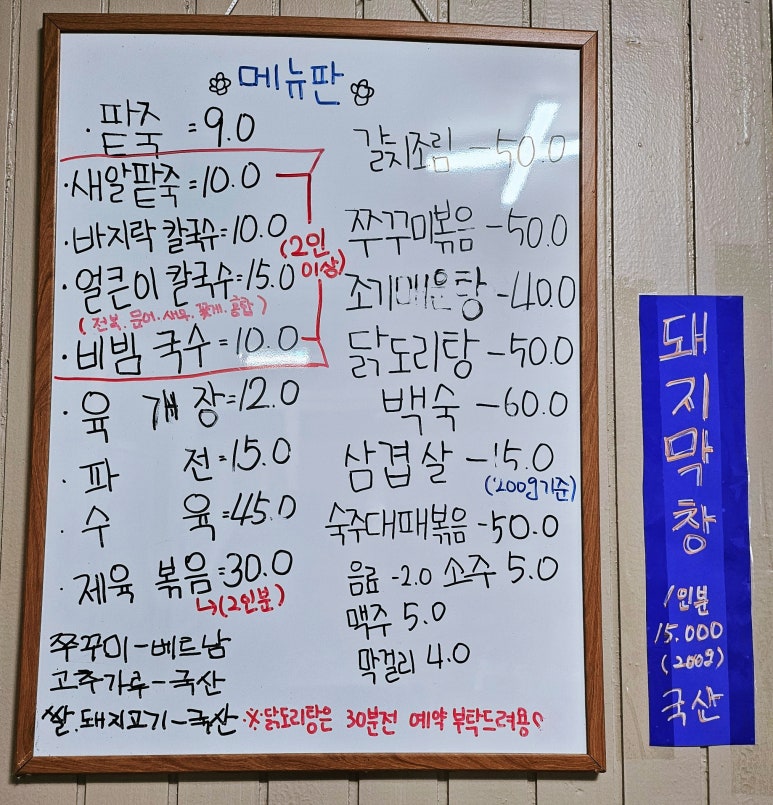 메뉴판
· 팥죽 = 9.0
· 새알팥죽 = 10.0
· 바지락 칼국수 = 10.0
(2인 이상)
· 얼큰이 칼국수 = 15.0
(전복. 문어. 새우. 꽃게. 홍합)
· 비빔 국수 = 10.0
· 육개장 = 12.0
· 파전 = 15.0
· 수육 = 45.0
· 제육 볶음 = 30.0
↳(2인분)
쭈꾸미 - 베트남
고추가루 - 국산
쌀. 돼지고기 - 국산
갈치조림 - 50.0
쭈꾸미볶음 - 50.0
조기매운탕 - 40.0
닭도리탕 - 50.0
백숙 - 60.0
삼겹살 - 15.0
(200g기준)
숙주대패볶음 - 50.0
음료 - 2.0 소주 5.0
맥주 5.0
막걸리 4.0
※닭도리탕은 30분전 예약 부탁드려용♡
돼지막창
1인분
15.000
(200g)
국산